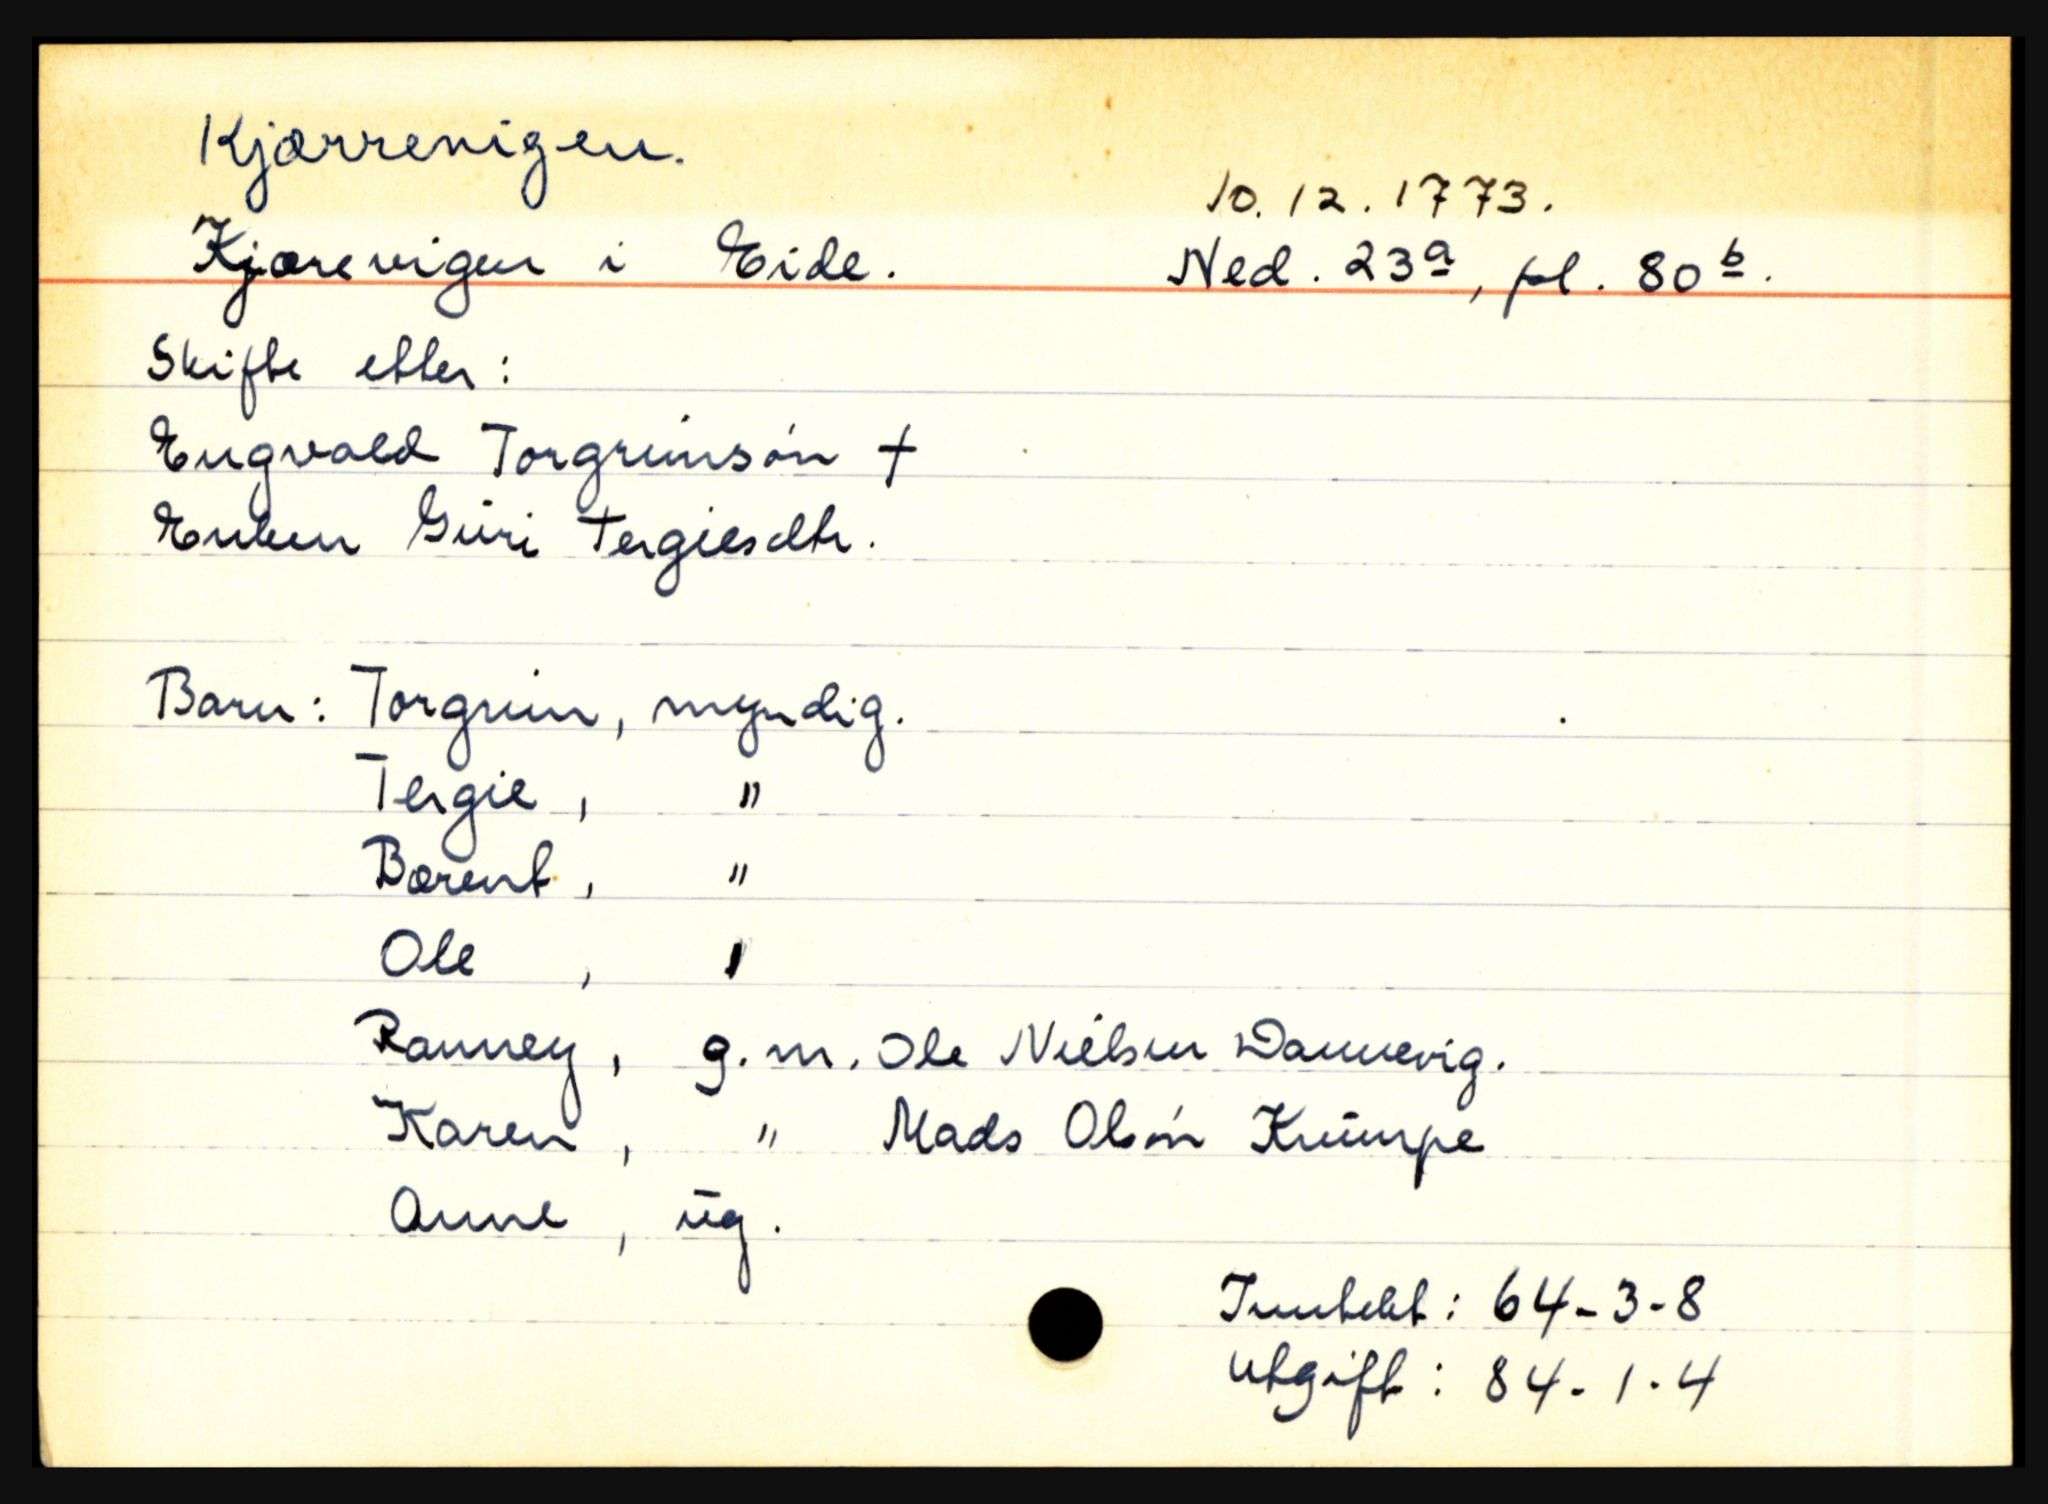 Kjærrevigen.
10.12.1773.
Kjærevigen i Eide.
Ned. 23a, pl. 80b.
Skifte etter:
Engvald Torgrimsøn †
Enken Guri Tergiesdtr.
Barn: Torgrim, myndig.
Tergie, "
Børent, "
Ole, "
Ranney, g.m. Ole Nielsen Dannevig.
Karen, " Mads Olsøn Krumpe
Anne, ug.
Inntekt: 64-3-8
Utgift: 84-1-4